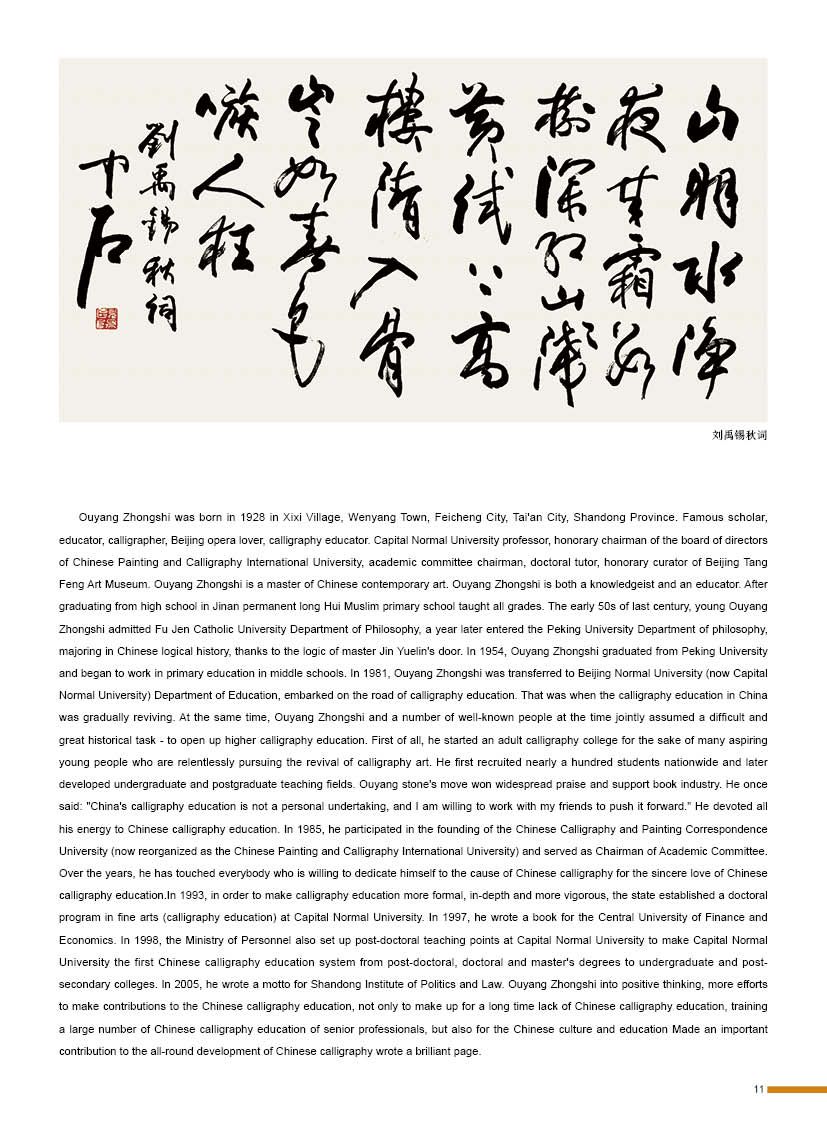 山明水淨
夜來霜數
樹深紅出淺
黃試上高
樓清入骨
豈如春色
嗾人狂
劉禹錫秋詞
中石
刘禹锡秋词
Ouyang Zhongshi was born in 1928 in Xixi Village, Wenyang Town, Feicheng City, Tai'an City, Shandong Province. Famous scholar,
educator, calligrapher, Beijing opera lover, calligraphy educator. Capital Normal University professor, honorary chairman of the board of directors
of Chinese Painting and Calligraphy International University, academic committee chairman, doctoral tutor, honorary curator of Beijing Tang
Feng Art Museum. Ouyang Zhongshi is a master of Chinese contemporary art. Ouyang Zhongshi is both a knowledgeist and an educator. After
graduating from high school in Jinan permanent long Hui Muslim primary school taught all grades. The early 50s of last century, young Ouyang
Zhongshi admitted Fu Jen Catholic University Department of Philosophy, a year later entered the Peking University Department of philosophy,
majoring in Chinese logical history, thanks to the logic of master Jin Yuelin's door. In 1954, Ouyang Zhongshi graduated from Peking University
and began to work in primary education in middle schools. In 1981, Ouyang Zhongshi was transferred to Beijing Normal University (now Capital
Normal University) Department of Education, embarked on the road of calligraphy education. That was when the calligraphy education in China
was gradually reviving. At the same time, Ouyang Zhongshi and a number of well-known people at the time jointly assumed a difficult and
great historical task - to open up higher calligraphy education. First of all, he started an adult calligraphy college for the sake of many aspiring
young people who are relentlessly pursuing the revival of calligraphy art. He first recruited nearly a hundred students nationwide and later
developed undergraduate and postgraduate teaching fields. Ouyang stone's move won widespread praise and support book industry. He once
said: "China's calligraphy education is not a personal undertaking, and I am willing to work with my friends to push it forward." He devoted all
his energy to Chinese calligraphy education. In 1985, he participated in the founding of the Chinese Calligraphy and Painting Correspondence
University (now reorganized as the Chinese Painting and Calligraphy International University) and served as Chairman of Academic Committee.
Over the years, he has touched everybody who is willing to dedicate himself to the cause of Chinese calligraphy for the sincere love of Chinese
calligraphy education.In 1993, in order to make calligraphy education more formal, in-depth and more vigorous, the state established a doctoral
program in fine arts (calligraphy education) at Capital Normal University. In 1997, he wrote a book for the Central University of Finance and
Economics. In 1998, the Ministry of Personnel also set up post-doctoral teaching points at Capital Normal University to make Capital Normal
University the first Chinese calligraphy education system from post-doctoral, doctoral and master's degrees to undergraduate and post-
secondary colleges. In 2005, he wrote a motto for Shandong Institute of Politics and Law. Ouyang Zhongshi into positive thinking, more efforts
to make contributions to the Chinese calligraphy education, not only to make up for a long time lack of Chinese calligraphy education, training
a large number of Chinese calligraphy education of senior professionals, but also for the Chinese culture and education Made an important
contribution to the all-round development of Chinese calligraphy wrote a brilliant page.
11